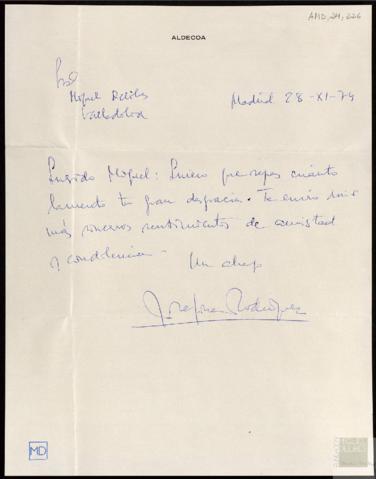 AMD, 24, 226
ALDECOA
Miguel Delibes
Valladolid
Madrid 28-XI-74
Querido Miguel: Quiero que sepas cuánto
lamento tu gran desgracia. Te envío mis
más sinceros sentimientos de amistad
y condolencia.
Un
Josefina Rodríguez
MD